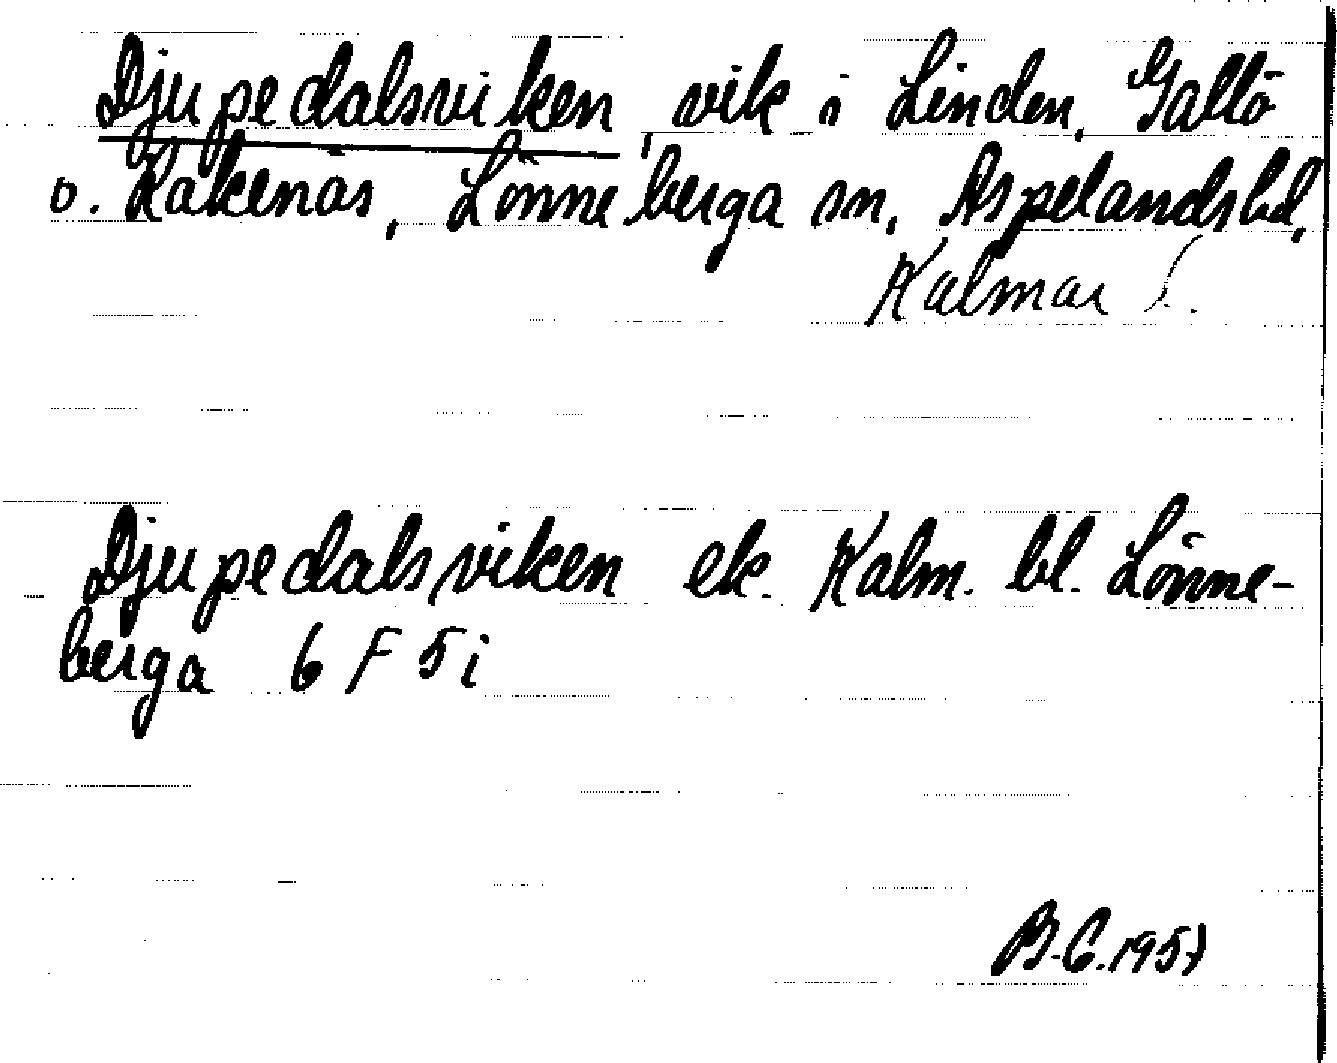 Djupedalsviken, vik i Linden, Galtö
o. Kakenäs, Lönneberga sn, Aspelands hd,
Kalmar l.
Djupedalsviken ek. Kalm. bl. Lönne-
berga 6 F 5 i
B.C. 1957